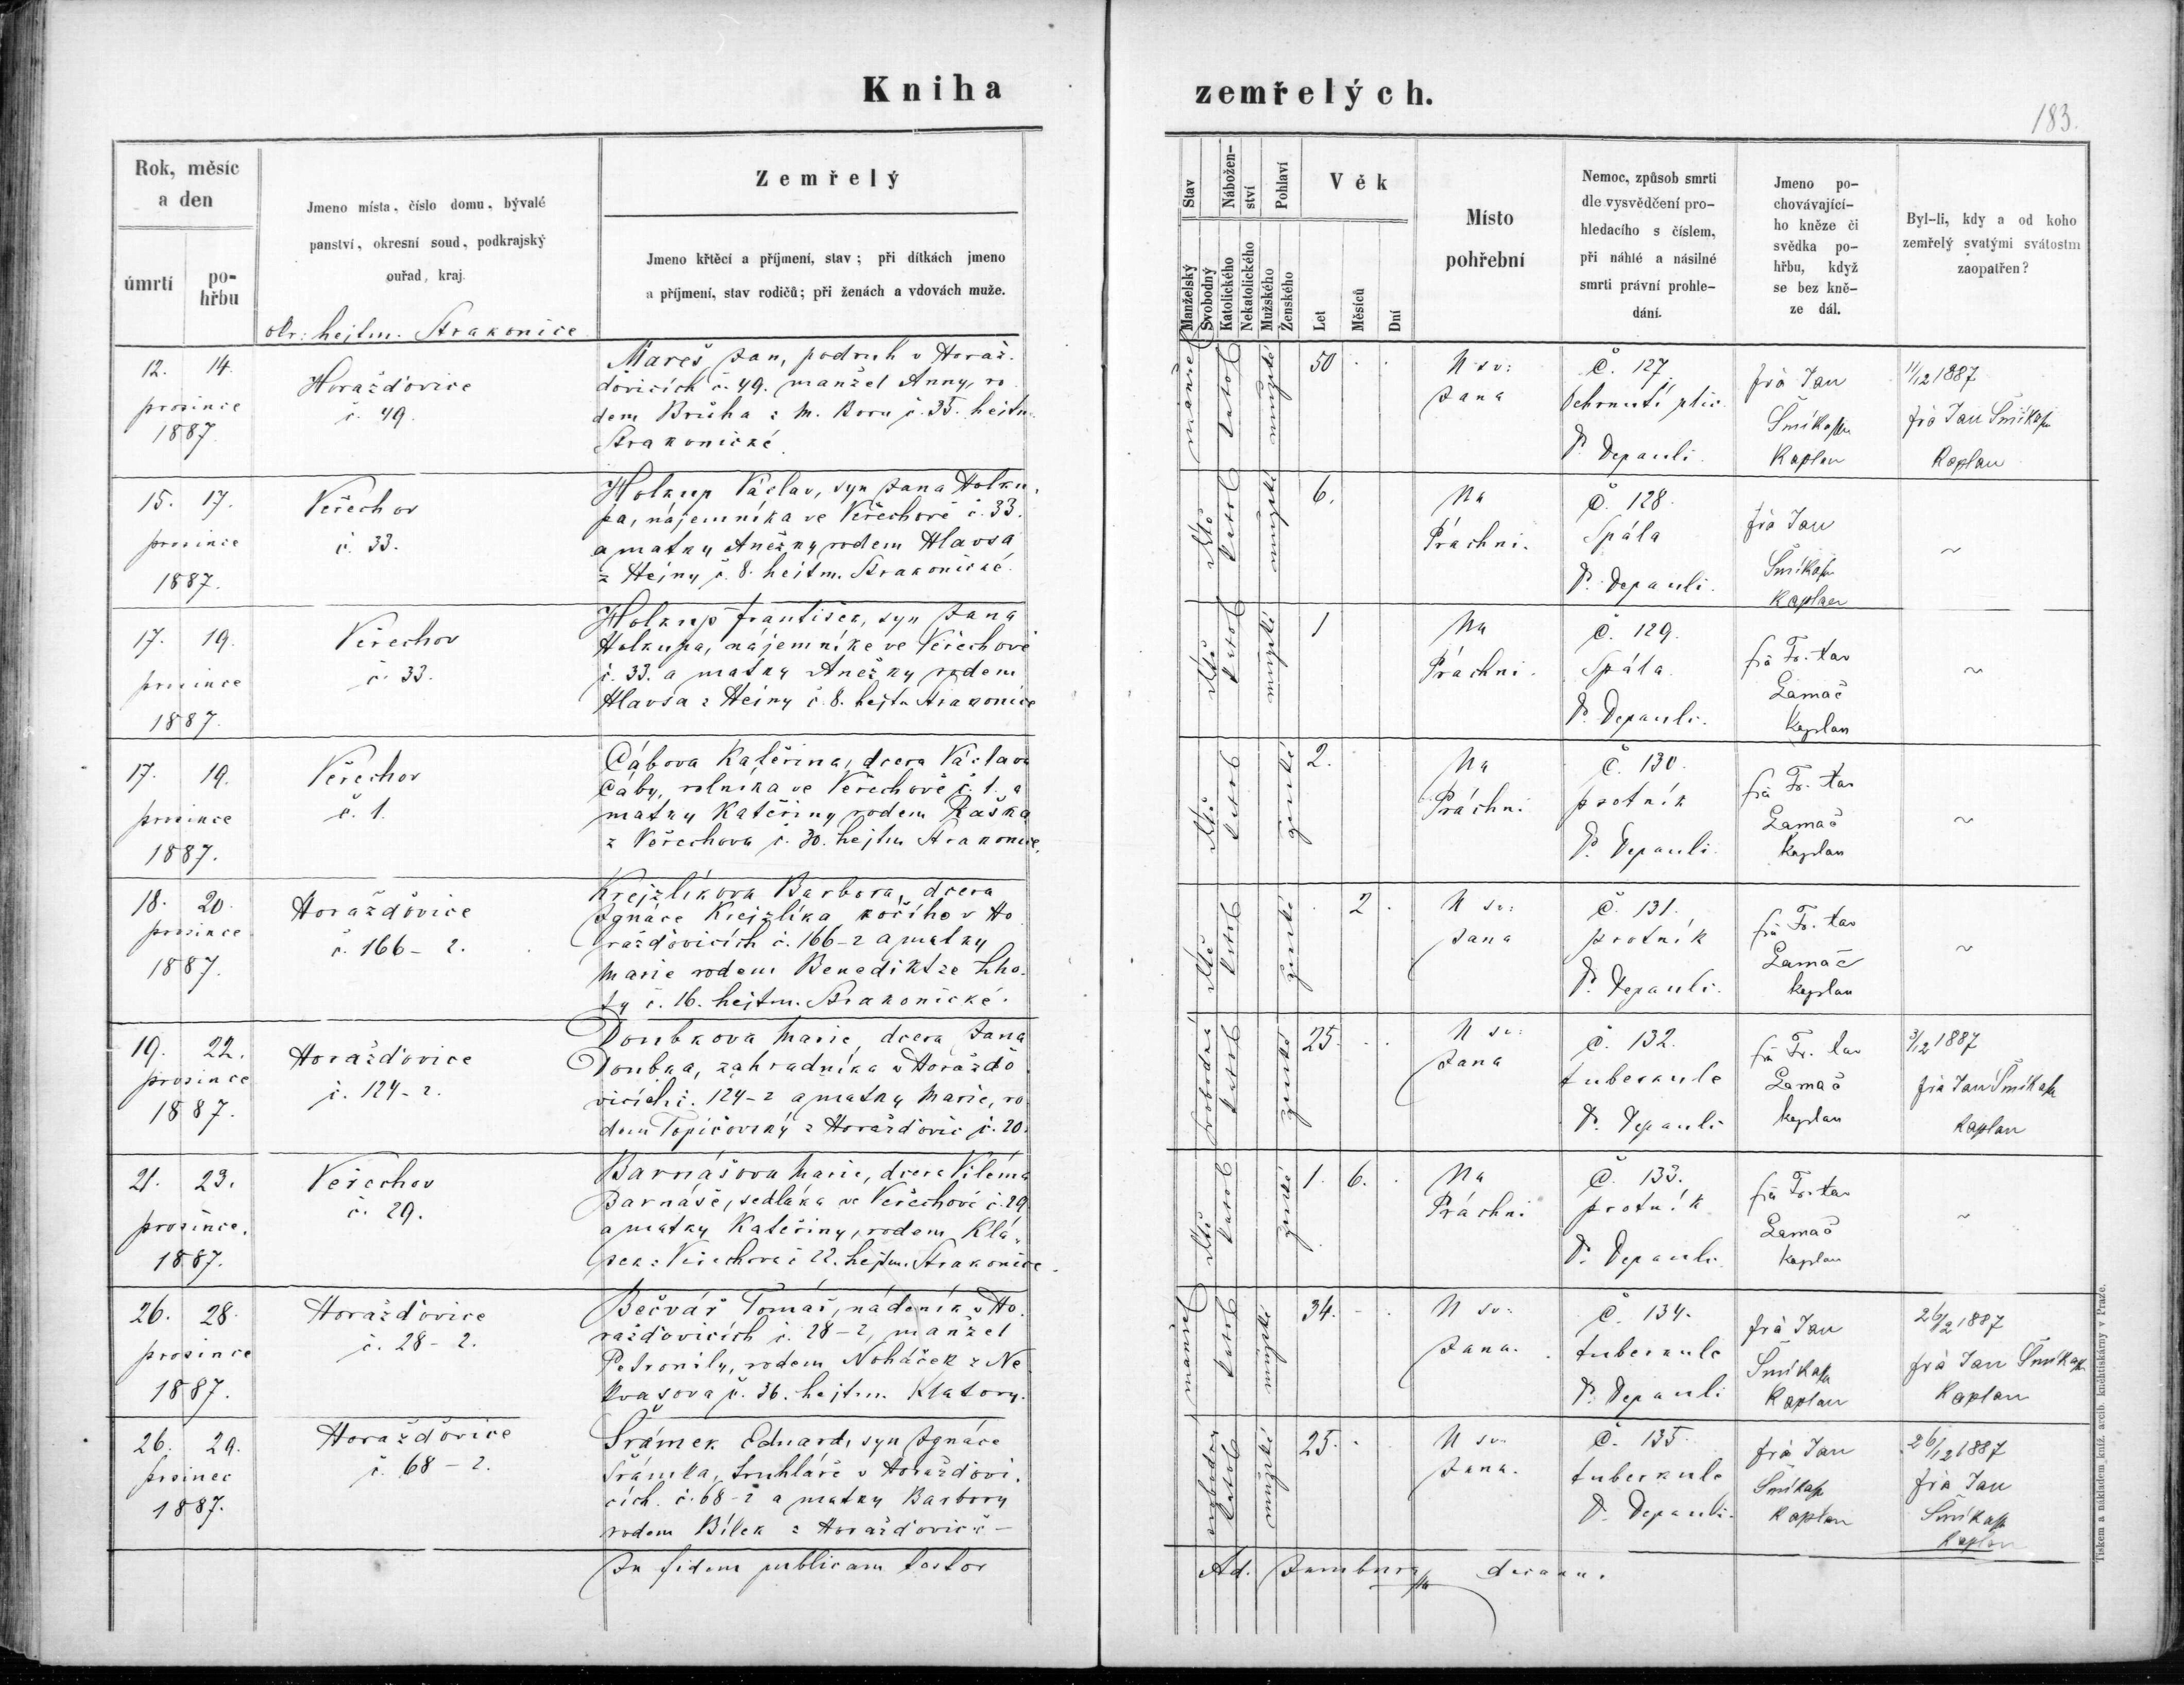 Kniha zemřelých.
183.
Rok, měsíc
a den
úmrtí
po-
hřbu
Jmeno místa, číslo domu, bývalé
panství, okresní soud, podkrajský
ouřad, kraj.
okr: hejtm. Strakonice
Zemřelý
Jmeno křtěcí a příjmení, stav; při dítkách jmeno
a příjmení, stav rodičů; při ženách a vdovách muže.
Stav
Manželský
Svobodný
Nábožen-
ství
Katolického
Nekatolického
Pohlaví
Mužského
Ženského
Věk
Let
Měsíců
Dní
Místo
pohřební
Nemoc, způsob smrti
dle vysvědčení pro-
hledacího s číslem,
při náhlé a násilné
smrti právní prohle-
dání.
Jmeno po-
chovávající-
ho kněze či
svědka po-
hřbu, když
se bez kně-
ze dál.
Byl-li, kdy a od koho
zemřelý svatými svátostmi
zaopatřen?
12. 14.
prosince
1887.
Horažďovice
č. 49.
Mareš Jan, podruh v Horaž-
ďovicích č. 49. manžel Anny, ro
dem Brůha z M. Boru č. 35. hejtm.
Strakonické.
manžel
katol
mužské
50
U sv:
Jana
Č. 127.
Ochrnutí plic
P. Depauli.
fra Jan
Kaplan
11/12 1887
fra Jan
Kaplan
15. 17.
prosince
1887.
Veřechov
č. 33.
Holkup Václav, syn Jana Holku-
pa, nájemníka ve Veřechově č. 33.
a matky Anežky rodem Hlavsa
z Hejny č. 8. hejtm. Strakonické.
dítě
katol
mužské
6.
Na
Práchni.
Č. 128.
Spála
P. Depauli.
fra Jan
Kaplan
~
17. 19.
prosince
1887.
Veřechov
č. 33.
Holkup František, syn Jana
Holkupa, nájemníka ve Veřechově
č. 33. a matky Anežky rodem
Hlavsa z Hejny č. 8. hejtm Strakonice
dítě
katol
mužské
1
Na
Práchni.
Č. 129.
Spála.
P. Depauli.
fra Fr. Xav
Lamač
Kaplan
~
17. 19.
prosince
1887.
Veřechov
č. 1.
Cábova Kateřina, dcera Václava
Cáby, rolníka ve Veřechově č. 1. a
matky Kateřiny rodem Raška
z Veřechova č. 30. hejtm Strakonice.
dítě
katol
ženské
2.
Na
Práchni
Č. 130.
psotník
P. Depauli.
fra Fr. Xav
Lamač
Kaplan
~
18. 20.
prosince
1887.
Horažďovice
č. 166-2.
Krejzlíkova Barbora, dcera
Ignáce Krejzlíka kočího v Ho
ražďovicích č. 166-2 a matky
Marie rodem Benedikt ze Lho-
ty č. 16. hejtm. Strakonické.
dítě
katol
ženské
2
U sv:
Jana
Č. 131.
psotník
P. Depauli.
fra Fr. Xav
Lamač
kaplan
~
19. 22.
prosince
1887.
Horažďovice
č. 124-2.
Doubkova Marie, dcera Jana
Doubka, zahradníka v Horažďo
vicích č. 124-2 a matky Marie, ro
dem Topičovský z Horažďovic č. 20.
svobodná
katol
ženské
25.
U sv:
Jana
Č. 132.
tuberkule
P. Depauli
fra Fr. Xav
Lamač
kaplan
3/12 1887
fra Jan
Kaplan
21. 23.
prosince.
1887.
Veřechov
č. 29.
Barnášova Marie, dcera Viléma
Barnáše, sedláka ve Veřechově č. 29
a matky Kateřiny, rodem Klá-
sek z Veřechova č 22. hejtm. Strakonice.
dítě
katol
ženské
1. 6.
Na
Práchni
Č. 133.
psotník
P. Depauli.
fra Fr. Xav
Lamač
Kaplan
~
26. 28.
prosince
1887.
Horažďovice
č. 28-2.
Bečvář Tomáš, nádeník v Ho
ražďovicích č. 28-2, manžel
Petronily, rodem Noháček z Ne
kvasova č. 36. hejtm. Klatovy.
manžel
katol
mužské
34.
U sv:
Jana.
Č. 134.
tuberkule
P. Depauli
fra Jan
Kaplan
26/12 1887
fra Jan
Kaplan
26. 29.
prosinec
1887.
Horažďovice
č. 68-2.
Šrámek Eduard, syn Ignáce
Šrámka, truhláře v Horažďovi-
cích č. 68-2 a matky Barbory
rodem Bílek z Horažďovic
svobodný
katol
mužské
25.
U sv.
Jana.
Č. 135.
tuberkule
P. Depauli.
fra Jan
Kaplan
26/12 1887
fra Jan
Kaplan
In fidem publicam testor
Ad. decanu.
Tiskem a nákladem kníž. arcib. knihtiskárny v Praze.